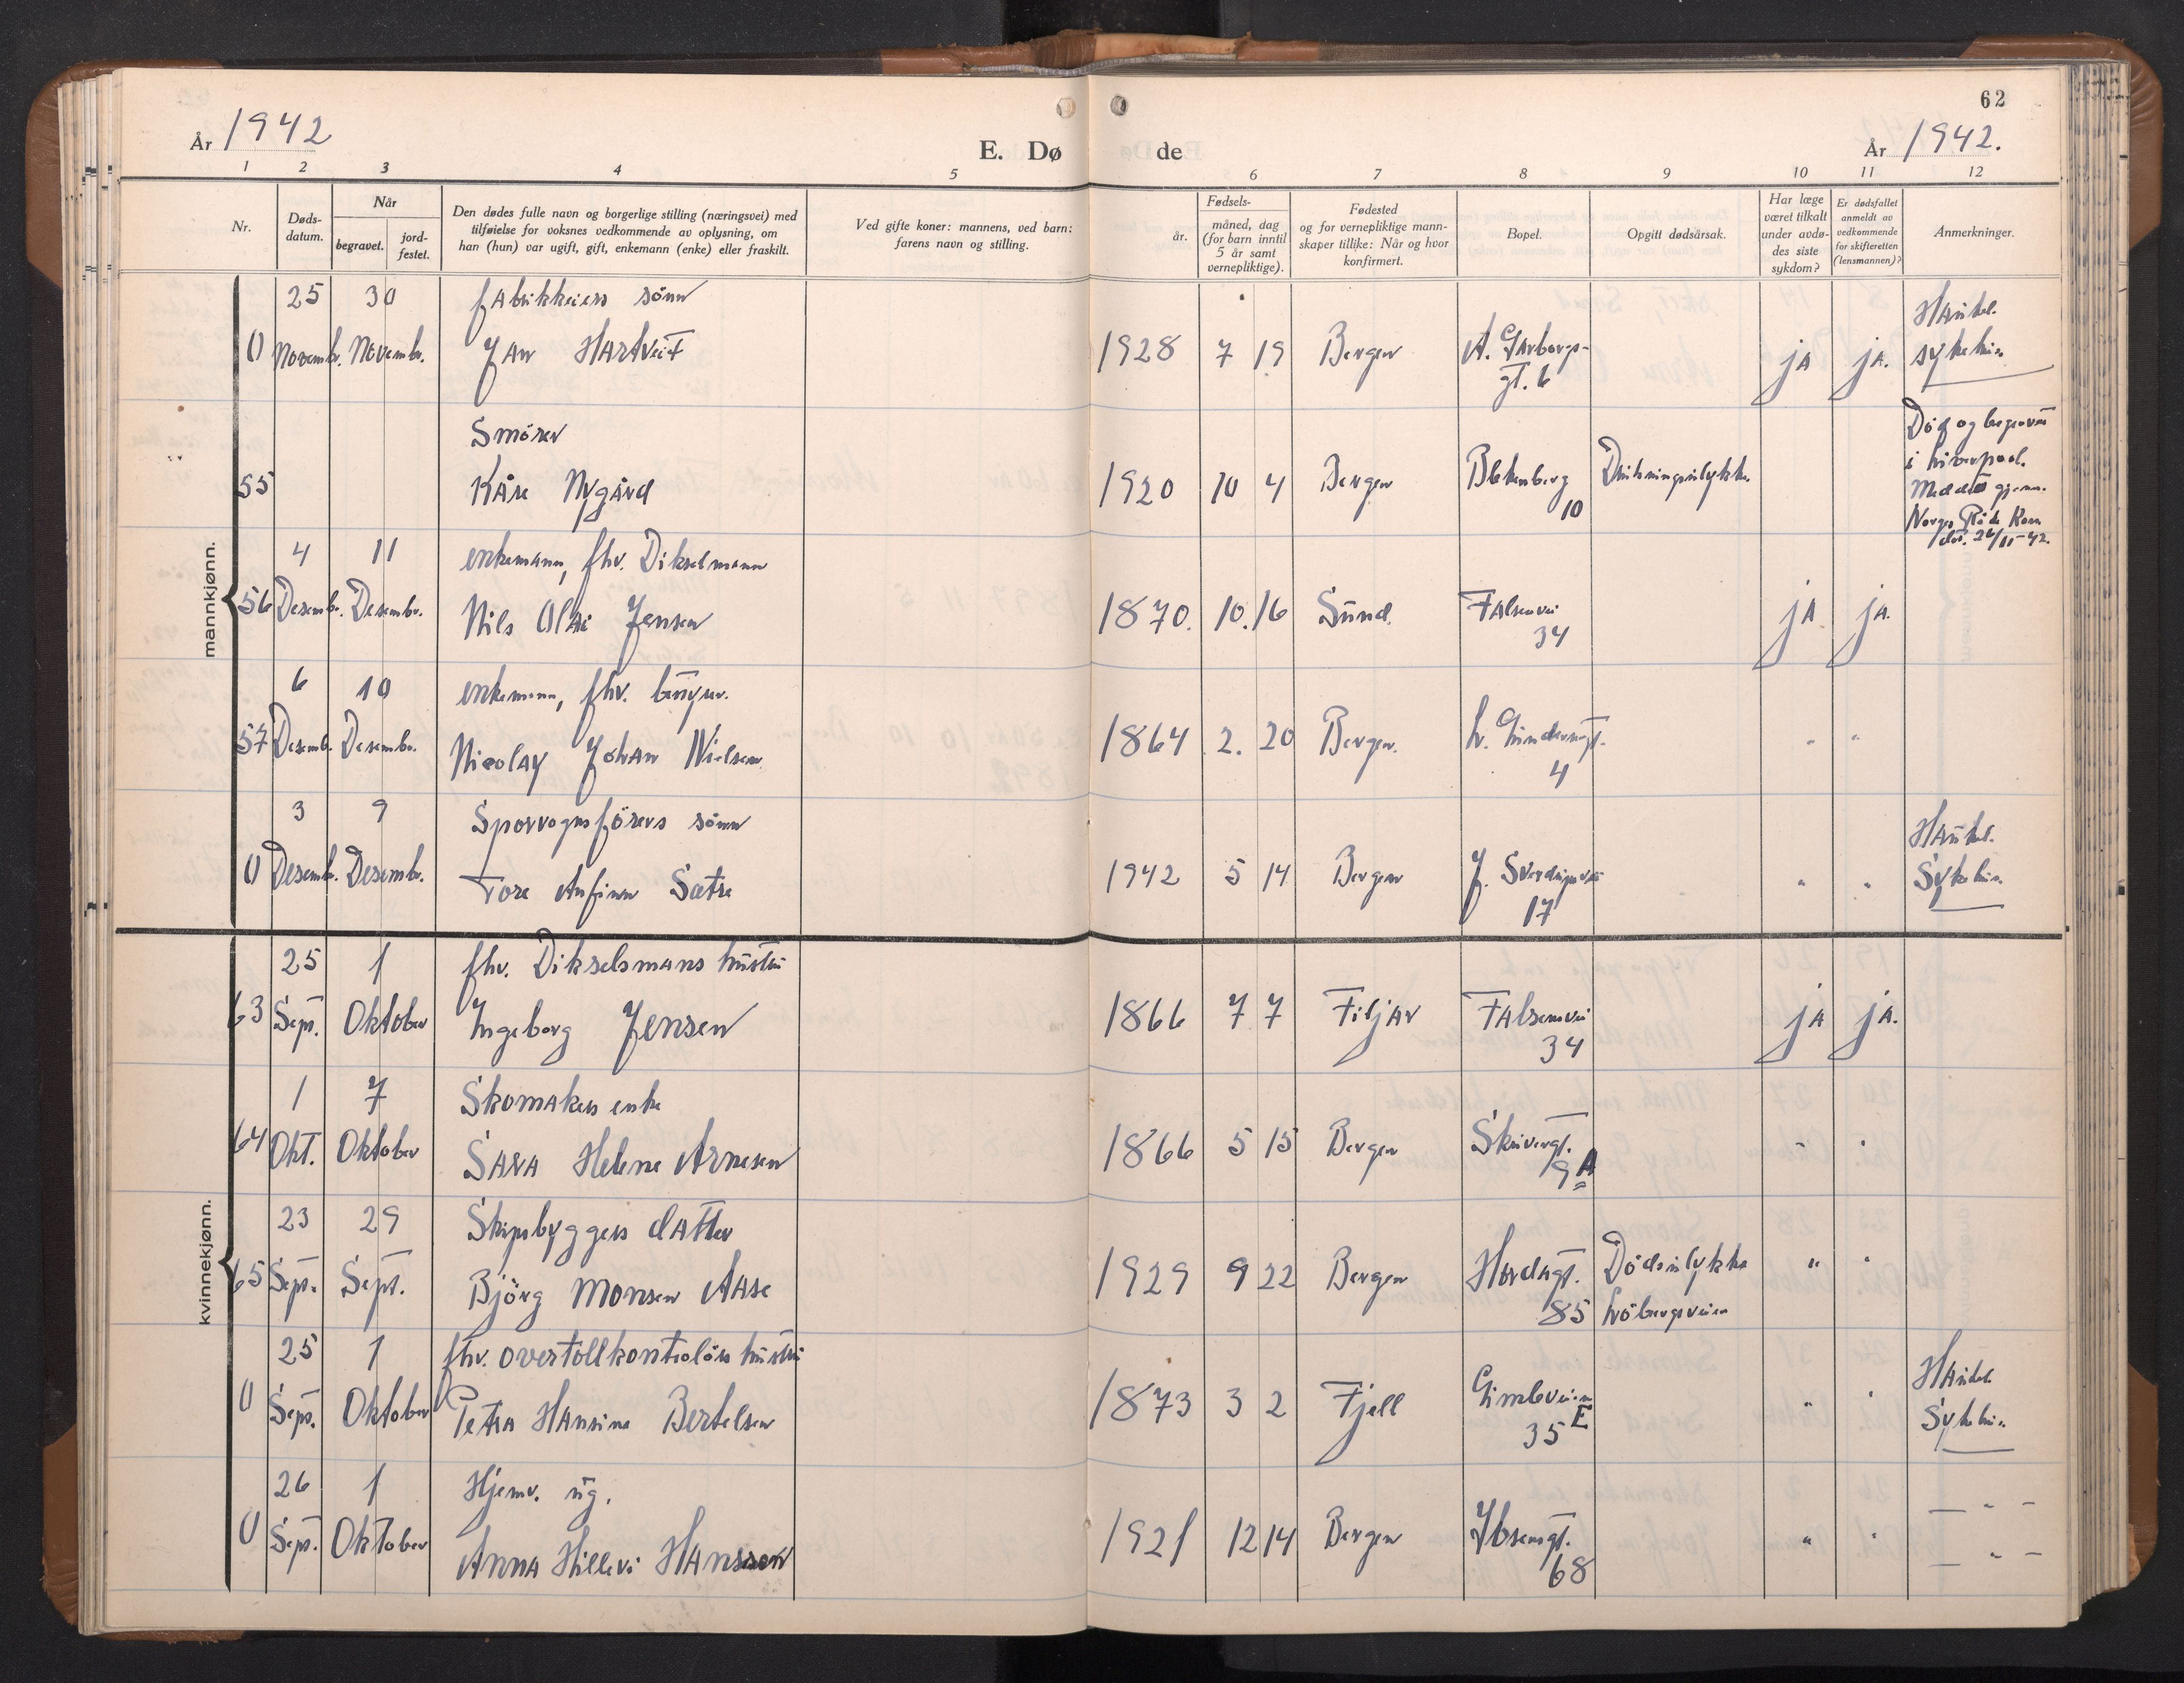 62
År 1942
E. Dø de
År 1942.
1 2 3 4 5 6 7 8 9 10 11 12
Nr.
Døds-
datum.
Når
begravet.
jord-
festet.
Den dødes fulle navn og borgerlige stilling (næringsvei) med
tilføielse for voksnes vedkommende av oplysning, om
han (hun) var ugift, gift, enkemann (enke) eller fraskilt.
Ved gifte koner: mannens, ved barn:
farens navn og stilling.
Fødsels-
år.
måned, dag
(for barn inntil
5 år samt
vernepliktige).
Fødested
og for vernepliktige mann-
skaper tillike: Når og hvor
konfirmert.
Bopel.
Opgitt dødsårsak.
Har læge
været tilkalt
under avdø-
des siste
sykdom?
Er dødsfallet
anmeldt av
vedkommende
for skifteretten
(lensmannen)?
Anmerkninger.
mannkjønn.
25 30 fabrikkeiers sønn Haukel.
0 Novembr. Novembr. Jan Hartveit 1928 7 19 Bergen A. Garborgs- ja ja. sykehus
gt. 6
Smører Død og begravet
55 Kåre Nygård 1920 10 4 Bergen Blekenberg Drukningsulykke i Liverpool.
10 Meddelt gjenn.
Norges Røde Kors
24/11-42.
4 11 enkemann, fhv. Dikselmann
56 Desembr. Desembr. Nils Olai Jensen 1870. 10. 16 Sund. Falsenvei ja ja.
34
6 10 enkemann, fhv.
57 Desemb. Desembr. Nicolay Johan Nielsen 1864 2. 20 Bergen. " "
4
3 9 Sporvognsførers sønn Haukel.
0 Desemb. Desembr. Tore Anfinn Sætre 1942 5 14 Bergen J. Sverdrupsvei " " Sykehus
17
kvinnekjønn.
25 1 fhv. Dikselsmans hustru
63 Sept. Oktober Ingeborg Jensen 1866 7 7 Fitjar Falsenvei ja ja.
34
1 7 Skomakers enke
64 Okt. Oktober Sara Helene Arnesen 1866 5 15 Bergen Skivergt. " "
9 A
23 29 Skipsbyggers datter
65 Sept. Sept. Bjørg Monsen Aase 1929 9 22 Bergen Hordagt. Dødsulykke " "
85 Løbergsveien
25 1 fhv. overtollkontrolørs hustru Haukel.
0 Sept. Oktober Petra Hansine Bertelsen 1873 3 2 Fjell Gimleveien " " Sykehus
35 E
26 1 Hjemv. ug. — " —
0 Sept. Oktober Anna Hillevi Hansson 1921 12 14 Bergen Ibsensgt. " " — " —
68